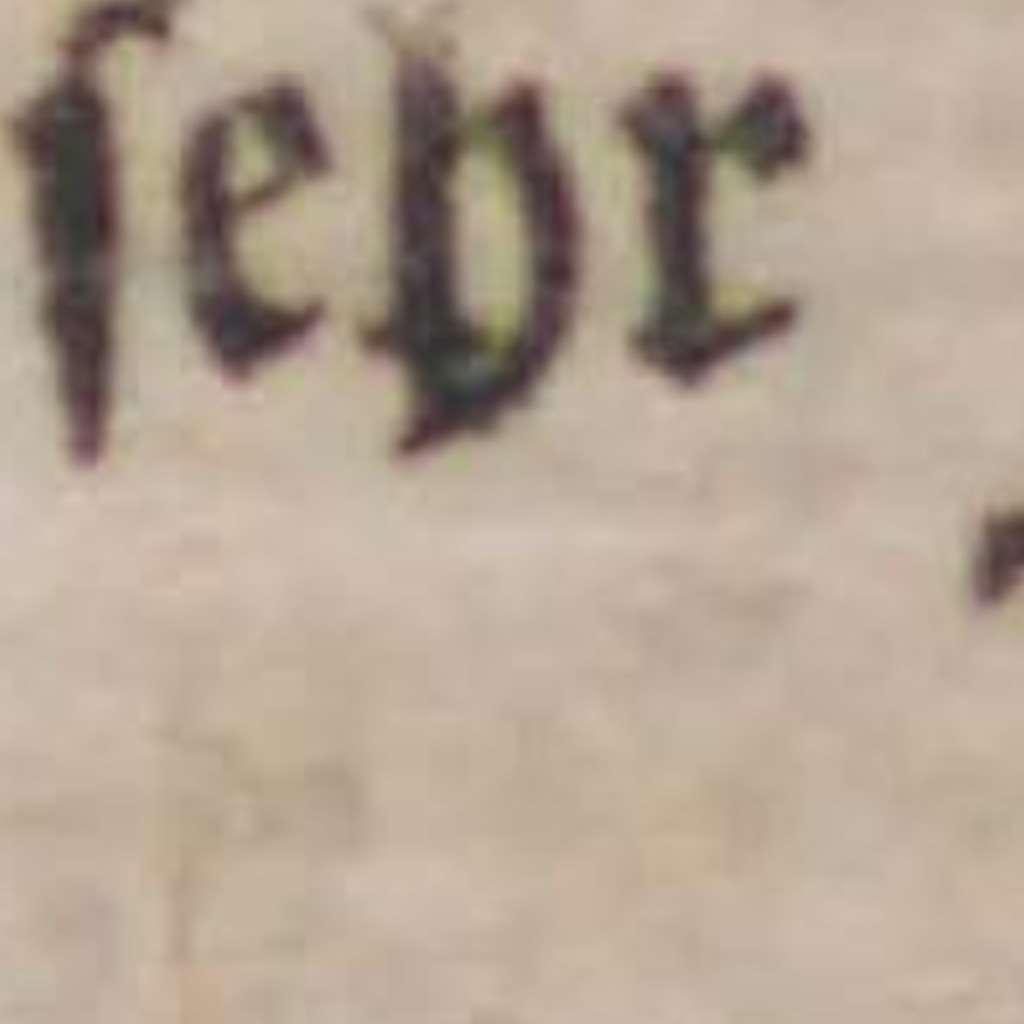 ſehr